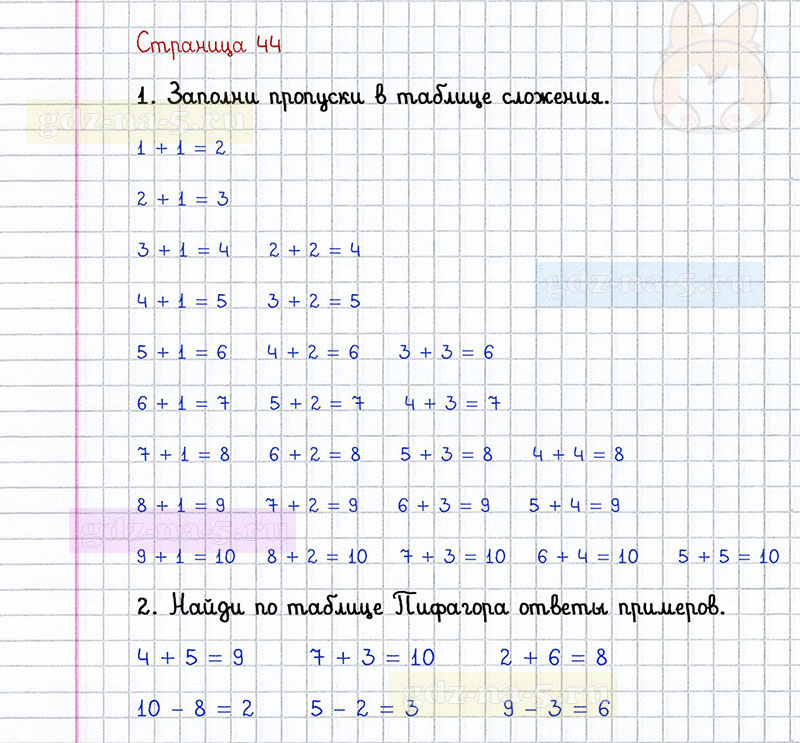 Страница 44
1. Заполни пропуски в таблице сложения.
gdz-na-5.ru
1 + 1 = 2
2 + 1 = 3
3 + 1 = 4 2 + 2 = 4
gdz-na-5.ru
4 + 1 = 5 3 + 2 = 5
5 + 1 = 6 4 + 2 = 6 3 + 3 = 6
6 + 1 = 7 5 + 2 = 7 4 + 3 = 7
7 + 1 = 8 6 + 2 = 8 5 + 3 = 8 4 + 4 = 8
8 + 1 = 9 7 + 2 = 9 6 + 3 = 9 5 + 4 = 9
gdz-na-5.ru
9 + 1 = 10 8 + 2 = 10 7 + 3 = 10 6 + 4 = 10 5 + 5 = 10
2. Найди по таблице Пифагора ответы примеров.
4 + 5 = 9 7 + 3 = 10 2 + 6 = 8
gdz-na-5.ru
10 - 8 = 2 5 - 2 = 3 9 - 3 = 6